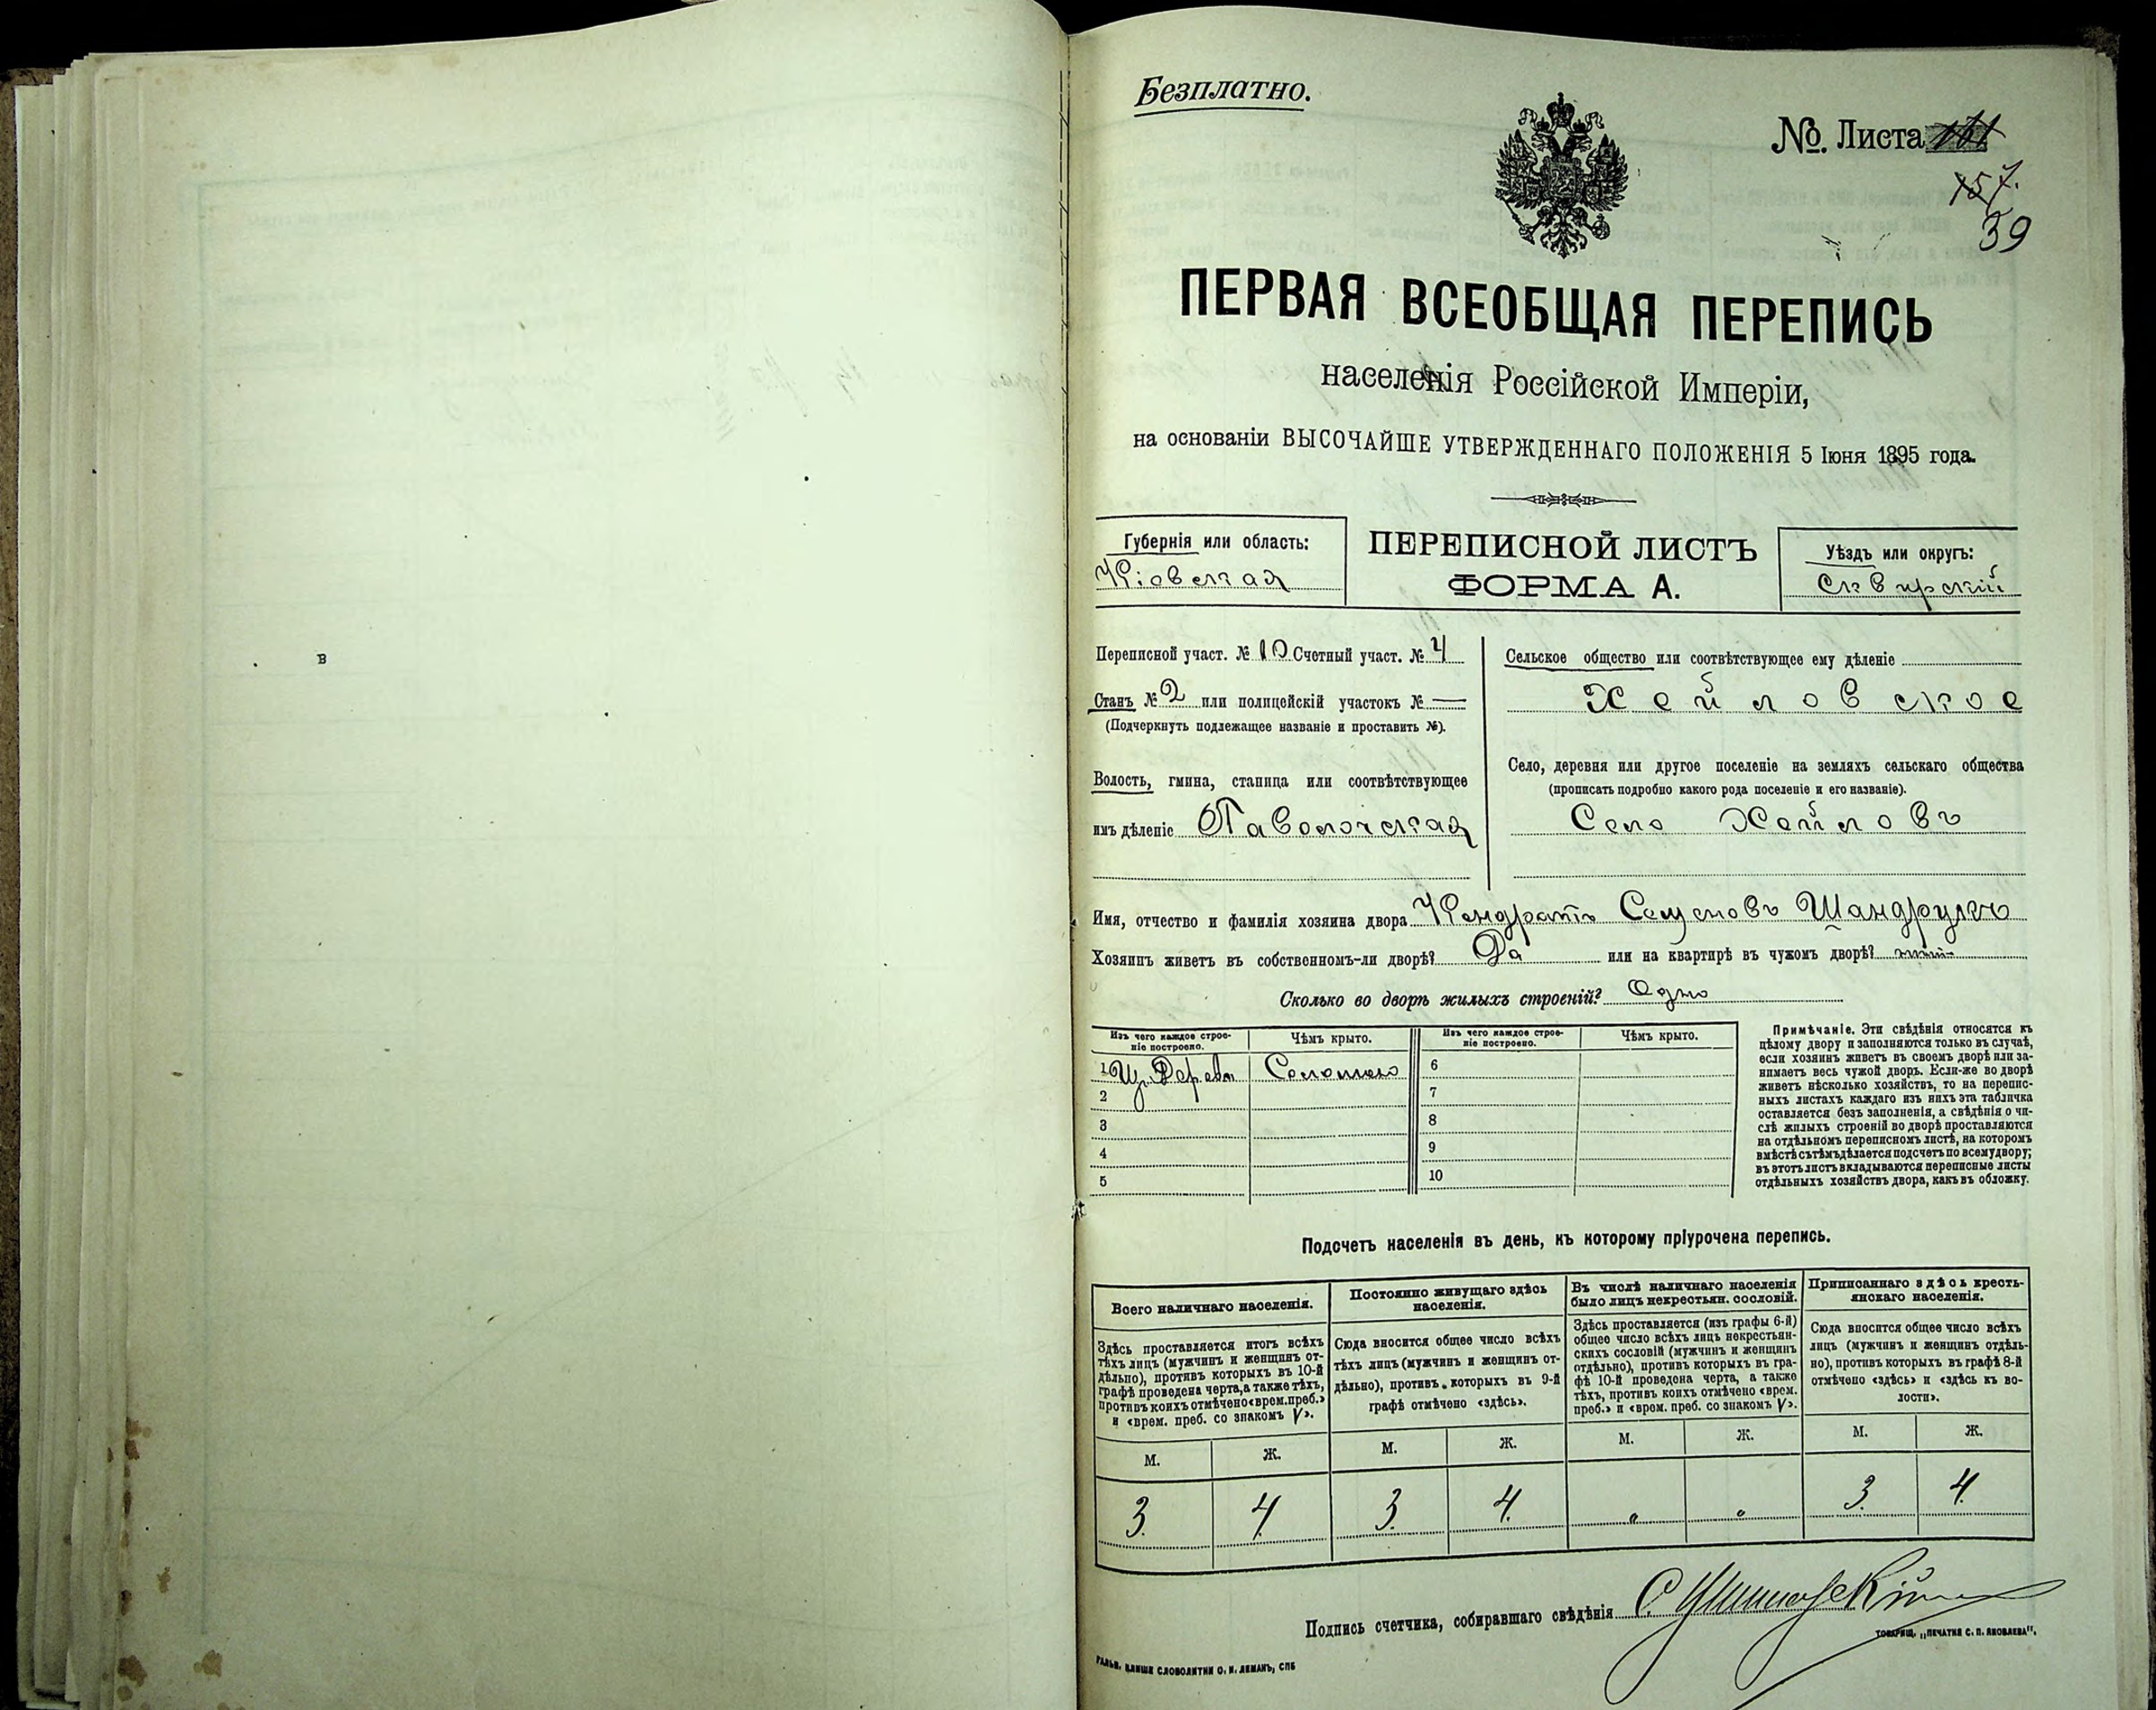 Безплатно.
№. Листа 161
157.
39
ПЕРВАЯ ВСЕОБЩАЯ ПЕРЕПИСЬ
населенія Россійской Имперіи,
на основаніи ВЫСОЧАЙШЕ УТВЕРЖДЕННАГО ПОЛОЖЕНІЯ 5 Іюня 1895 года.
Губернія или область:
Кіовская
ПЕРЕПИСНОЙ ЛИСТЪ
ФОРМА А.
Уѣздъ или округъ:
Сквирскій
Переписной участ. № 10 Счетный участ. № 4
Станъ № 2 или полицейскій участокъ № —
(Подчеркнуть подлежащее названіе и проставить №).
Волость, гмина, станица или соотвѣтствующее
имъ дѣленіе Паволочская
Сельское общество или соотвѣтствующее ему дѣленіе
Хейловское
Село, деревня или другое поселеніе на земляхъ сельскаго общества
(прописать подробно какого рода поселеніе и его названіе).
Село Хейловъ
Имя, отчество и фамилія хозяина двора Кондратъ Семеновъ Шандрукъ
Хозяинъ живетъ въ собственномъ-ли дворѣ? Да или на квартирѣ въ чужомъ дворѣ?
Сколько во дворѣ жилыхъ строеній? Одно
Изъ чего каждое строе-
ніе построено.
Чѣмъ крыто.
Изъ чего каждое строе-
ніе построено.
Чѣмъ крыто.
1 Из Дерева Соломою 6
2 7
3 8
4 9
5 10
Примѣчаніе. Эти свѣдѣнія относятся къ
цѣлому двору и заполняются только въ случаѣ,
если хозяинъ живетъ въ своемъ дворѣ или за-
нимаетъ весь чужой дворъ. Если-же во дворѣ
живетъ нѣсколько хозяйствъ, то на перепис-
ныхъ листахъ каждаго изъ нихъ эта табличка
оставляется безъ заполненія, а свѣдѣнія о чи-
слѣ жилыхъ строеній во дворѣ проставляются
на отдѣльномъ переписномъ листѣ, на которомъ
вмѣстѣ съ тѣмъ дѣлается подсчетъ по всему двору;
въ этотъ листъ вкладываются переписные листы
отдѣльныхъ хозяйствъ двора, какъ въ обложку.
Подсчетъ населенія въ день, къ которому пріурочена перепись.
Всего наличнаго населенія.
Здѣсь проставляется итогъ всѣхъ
тѣхъ лицъ (мужчинъ и женщинъ от-
дѣльно), противъ которыхъ въ 10-й
графѣ проведена черта, а также тѣхъ,
противъ коихъ отмѣчено «врем. преб.»
и «врем. преб. со знакомъ V».
Постоянно живущаго здѣсь
населенія.
Сюда вносится общее число всѣхъ
тѣхъ лицъ (мужчинъ и женщинъ от-
дѣльно), противъ которыхъ въ 9-й
графѣ отмѣчено «здѣсь».
Въ числѣ наличнаго населенія
было лицъ некрестьян. сословій.
Здѣсь проставляется (изъ графы 6-й)
общее число всѣхъ лицъ некрестьян-
скихъ сословій (мужчинъ и женщинъ
отдѣльно), противъ которыхъ въ гра-
фѣ 10-й проведена черта, а также
тѣхъ, противъ коихъ отмѣчено «врем.
преб.» и «врем. преб. со знакомъ V».
Приписаннаго здѣсь кресть-
янскаго населенія.
Сюда вносится общее число всѣхъ
лицъ (мужчинъ и женщинъ отдѣль-
но), противъ которыхъ въ графѣ 8-й
отмѣчено «здѣсь» и «здѣсь къ во-
лости».
М. Ж. М. Ж. М. Ж. М. Ж.
3. 4. 3. 4. " " 3. 4.
Подпись счетчика, собиравшаго свѣдѣнія
ТОВАРИЩ. „ПЕЧАТНЯ С. П. ЯКОВЛЕВА".
ГАЛЬВ. КЛИШЕ СЛОВОЛИТНИ О. И. ЛЕМАНЪ, СПБ